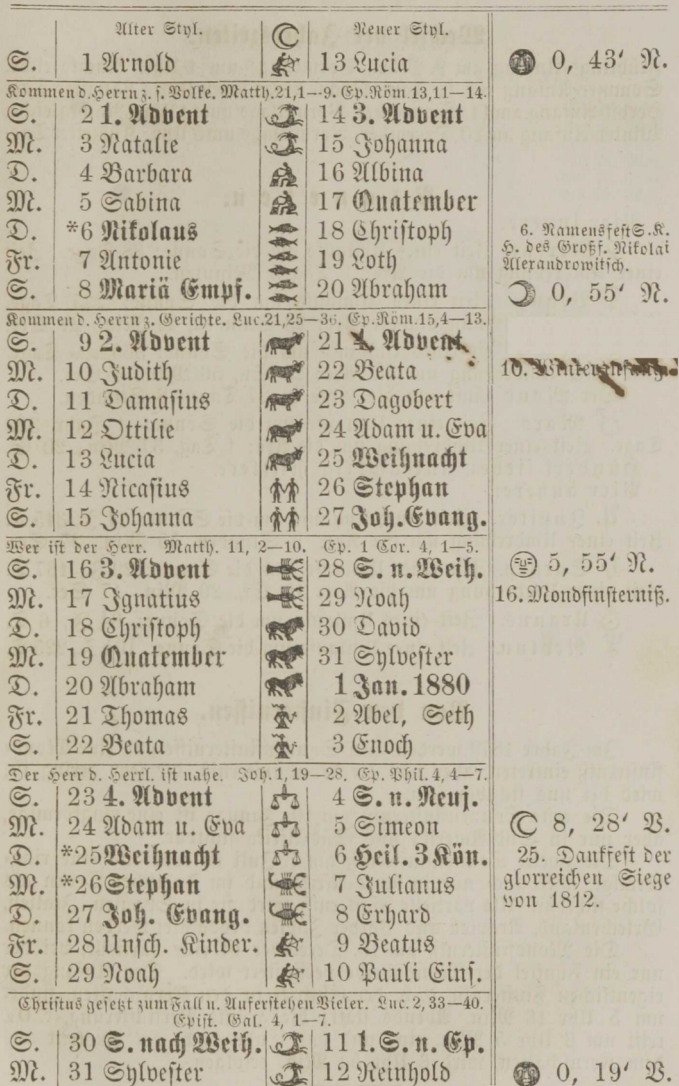 Alter Styl. Neuer Styl.
S. 1 Arnold 13 Lucia 0, 43' N.
Kommen d. Herrn z. s. Volke. Matth. 21,1—9. Ep. Röm. 13,11—14.
S. 2 1. Advent 14 3. Advent
M. 3 Natalie 15 Johanna
D. 4 Barbara 16 Albina
M. 5 Sabina 17 Quatember
D. *6 Nikolaus 18 Christoph
Fr. 7 Antonie 19 Loth
S. 8 Mariä Empf. 20 Abraham
6. Namensfest S. K.
H. des Großf. Nikolai
Alexandrowitsch.
0, 55' N.
Kommen d. Herrn z. Gerichte. Luc. 21,25—36. Ep. Röm. 15,4—13.
S. 9 2. Advent 21 4. Advent
M. 10 Judith 22 Beata 10.
D. 11 Damasius 23 Dagobert
M. 12 Ottilie 24 Adam u. Eva
D. 13 Lucia 25 Weihnacht
Fr. 14 Nicasius 26 Stephan
S. 15 Johanna 27 Joh. Evang.
Wer ist der Herr. Matth. 11, 2—10. Ep. 1 Cor. 4, 1—5.
S. 16 3. Advent 28 S. n. Weih. 5, 55' N.
M. 17 Ignatius 29 Noah 16. Mondfinsterniß.
D. 18 Christoph 30 David
M. 19 Quatember 31 Sylvester
D. 20 Abraham 1 Jan. 1880
Fr. 21 Thomas 2 Abel, Seth
S. 22 Beata 3 Enoch
Der Herr d. Herrl. ist nahe. Joh. 1,19—28. Ep. Phil. 4, 4—7.
S. 23 4. Advent 4 S. n. Neuj.
M. 24 Adam u. Eva 5 Simeon 8, 28' V.
D. *25 Weihnacht 6 Heil. 3 Kön.
M. *26 Stephan 7 Julianus
D. 27 Joh. Evang. 8 Erhard
Fr. 28 Unsch. Kinder. 9 Beatus
S. 29 Noah 10 Pauli Eins.
25. Dankfest der
glorreichen Siege
von 1812.
Christus gesetzt zum Fall u. Auferstehen Vieler. Luc. 2, 33—40.
Epist. Gal. 4, 1—7.
S. 30 S. nach Weih. 11 1. S. n. Ep.
M. 31 Sylvester 12 Reinhold 0, 19' V.